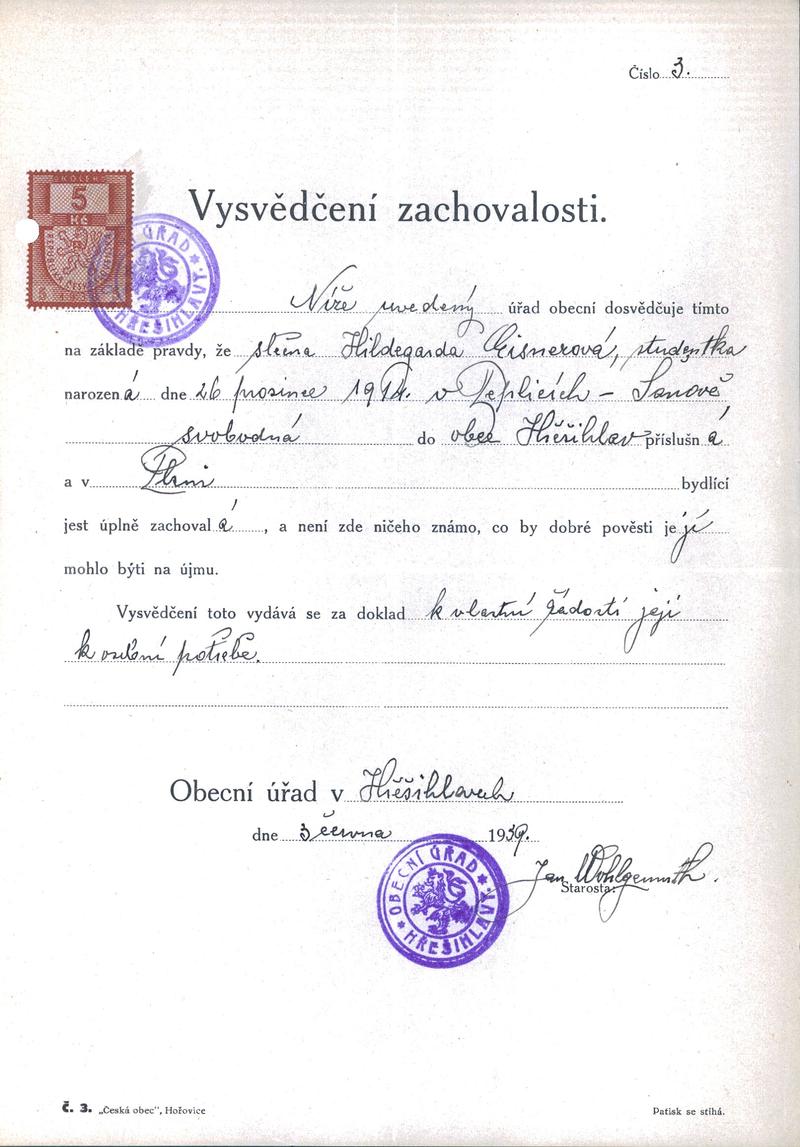 Číslo 3.
KOLEK
5
Kč
Vysvědčení zachovalosti.
OBECNÍ ÚŘAD HŘEŠIHLAVY
Níže uvedený úřad obecní dosvědčuje tímto
na základě pravdy, že slečna Hildegarda Eisnerová, studentka
narozená dne 26 prosince 19 v Teplicích – Šanově
svobodná do obce Hřešihlav příslušná
a v Plzni bydlící
jest úplně zachovalá, a není zde ničeho známo, co by dobré pověsti její
mohlo býti na újmu.
Vysvědčení toto vydává se za doklad k vlastní žádosti její
k osobní potřebě.
Obecní úřad v Hřešihlavech
dne 3 června 1939.
OBECNÍ ÚŘAD HŘEŠIHLAVY
Jan Wohlgemuth.
Starosta:
Č. 3. „Česká obec", Hořovice
Patisk se stíhá.